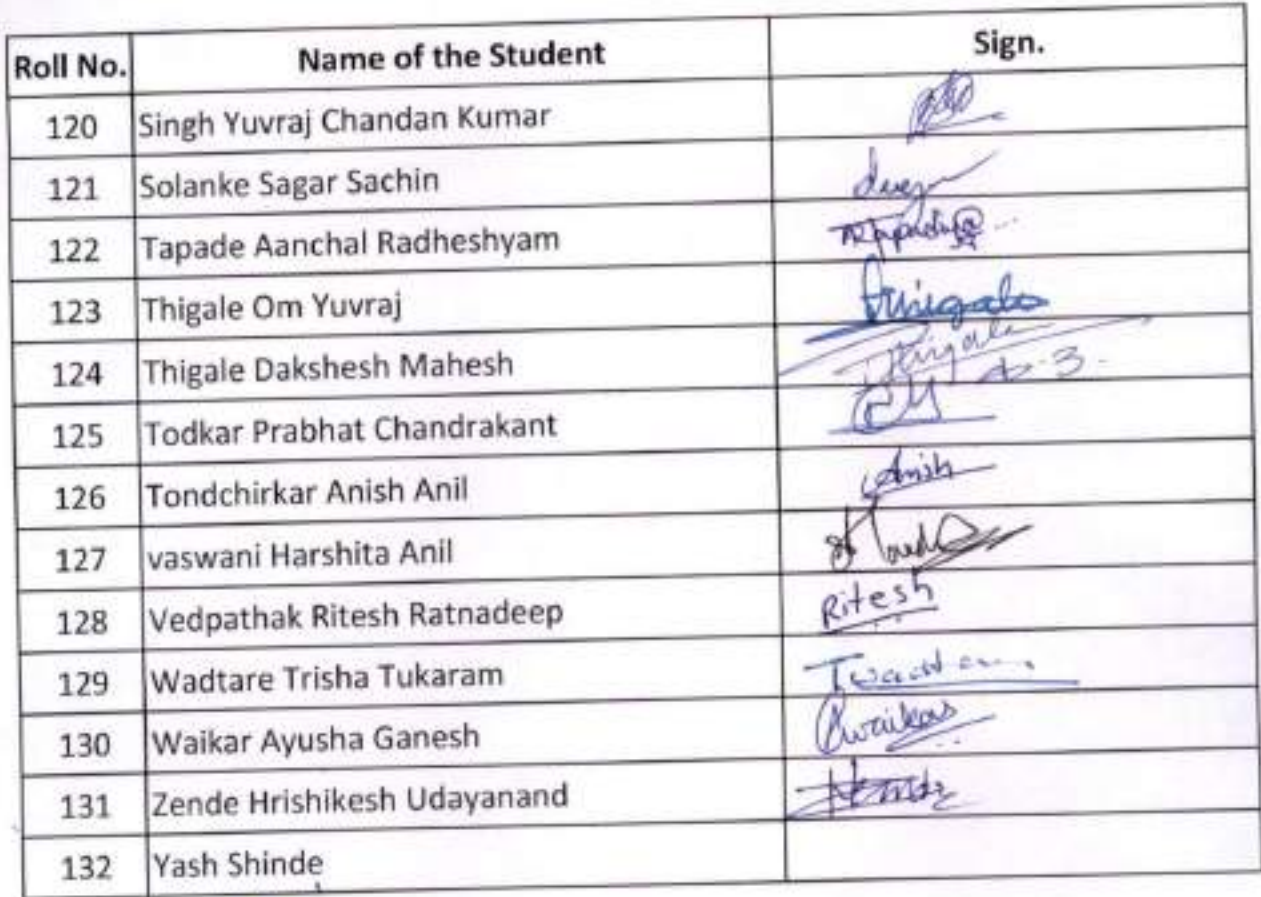 Roll No. Name of the Student Sign.
120 Singh Yuvraj Chandan Kumar
121 Solanke Sagar Sachin
122 Tapade Aanchal Radheshyam
123 Thigale Om Yuvraj Thigale
124 Thigale Dakshesh Mahesh Thigale
125 Todkar Prabhat Chandrakant
126 Tondchirkar Anish Anil Anish
127 vaswani Harshita Anil
128 Vedpathak Ritesh Ratnadeep Ritesh
129 Wadtare Trisha Tukaram
130 Waikar Ayusha Ganesh
131 Zende Hrishikesh Udayanand
132 Yash Shinde